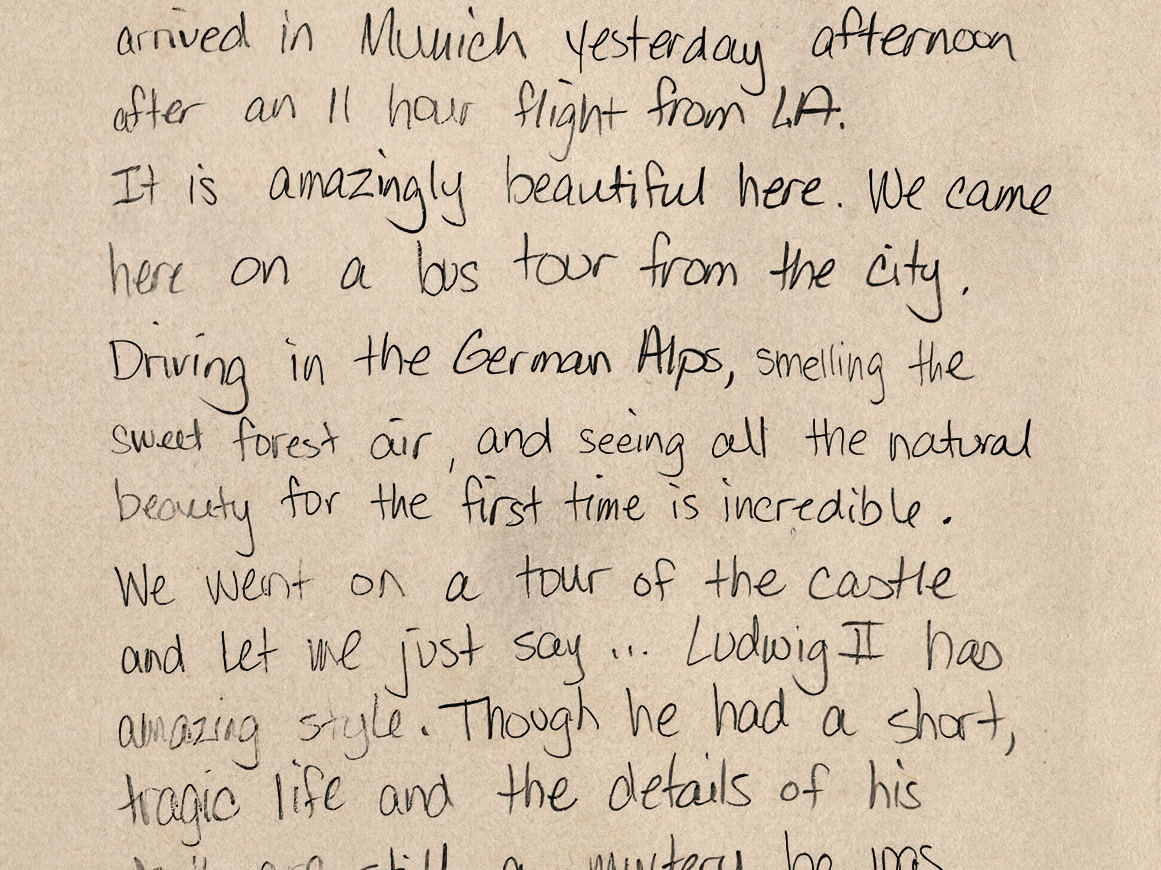 arrived in Munich yesterday afternoon
after an 11 hour flight from LA.
It is amazingly beautiful here. We came
here on a bus tour from the city.
Driving in the German Alps, smelling the
sweet forest air, and seeing all the natural
beauty for the first time is incredible.
We went on a tour of the castle
and let me just say... Ludwig II has
amazing style. Though he had a short,
tragic life and the details of his
are still a mystery he was